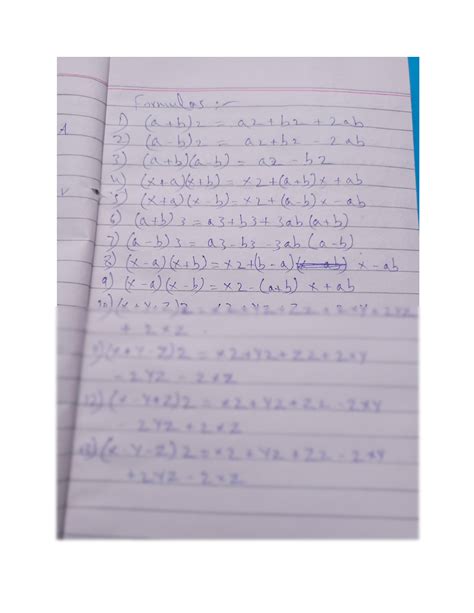 Formulas :-
1) (a+b)2 = a2+b2 + 2ab
2) (a-b)2 = a2+b2 - 2ab
3) (a+b)(a-b) = a2 - b2
4) (x+a)(x+b) = x2+(a+b)x+ab
5) (x+a)(x-b) = x2+(a-b)x-ab
6) (a+b)3 = a3+b3+3ab(a+b)
7) (a-b)3 = a3-b3-3ab(a-b)
8) (x-a)(x+b) = x2+(b-a) x-ab
9) (x-a)(x-b) = x2-(a+b) x+ab
10) (x+y+z)2 = x2+y2+z2+2xy+2yz
+ 2xz
11) (x+y-z)2 = x2+y2+z2+2xy
- 2yz - 2xz
12) (x-y+z)2 = x2+y2+z2-2xy
- 2yz + 2xz
13) (x-y-z)2 = x2+y2+z2-2xy
+2yz - 2xz